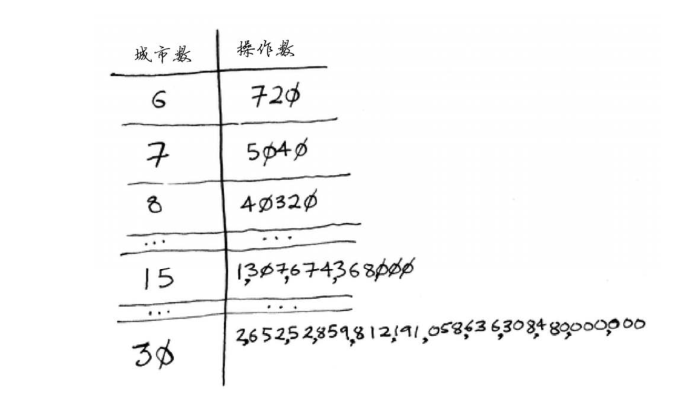 城市数 操作数
6 720
7 5040
8 40320
... ...
15 1,307,674,368000
... ...
30 2,652,52,859,812,191,058,636,308,480,000,000